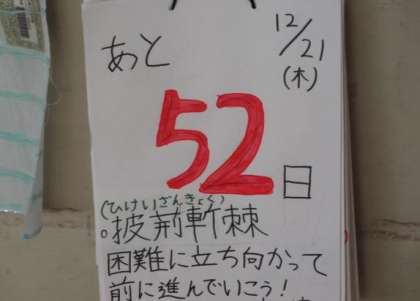 12/21
(木)
あと
52日
(ひけいざんきょく)
。披荊斬棘
困難に立ち向かって
前に進んでいこう!